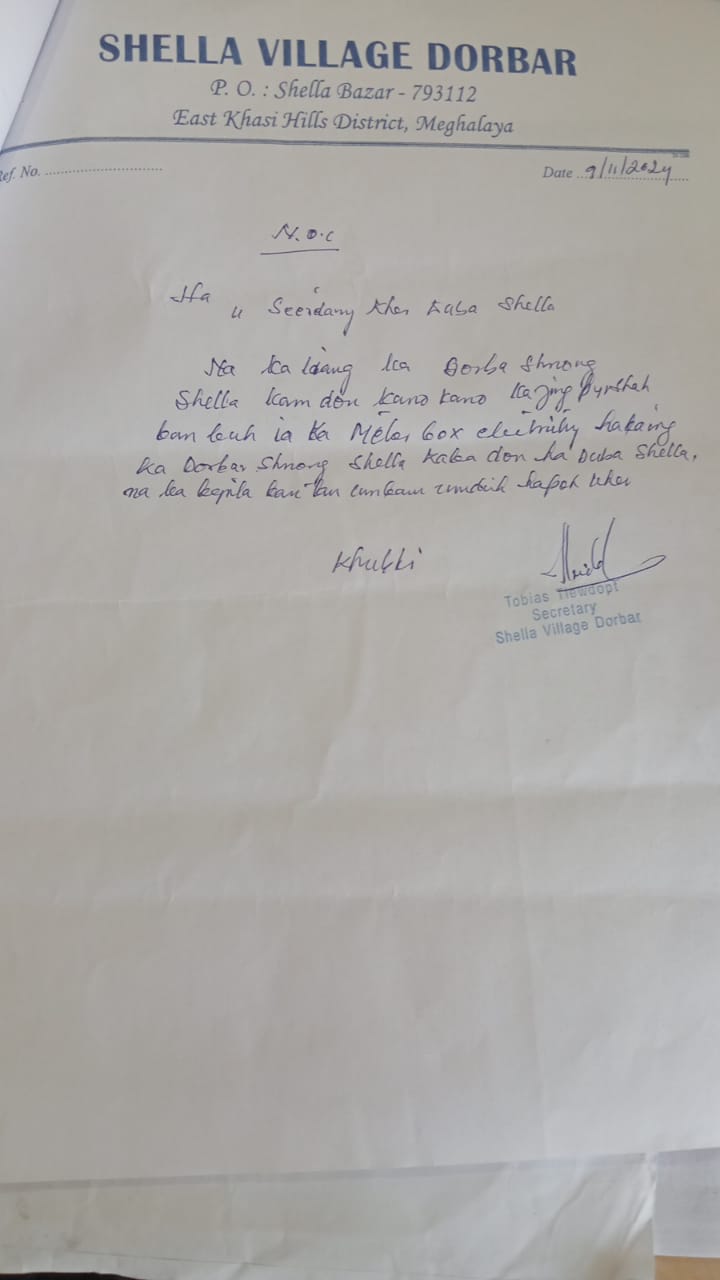 SHELLA VILLAGE DORBAR
P. O. : Shella Bazar - 793112
East Khasi Hills District, Meghalaya
Ref. No. ..............................
Date ..9/11/2024....
N.O.C
Ha
u Seerdang Khor Kaba Shella
Na ka liang ka Dorba Shnong
Shella kam don kano kano ka jing pyrshah
ban leuh ia ka Meter box electricity haka ing
ka Dorbar Shnong Shella kaba don ha Duba Shella,
na ka ban hapoh
Khublei
Tobias Tiewdopt
Secretary
Shella Village Dorbar